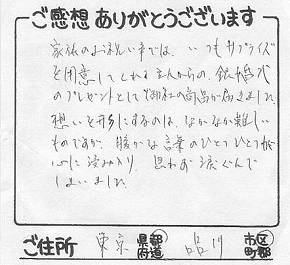 ご感想ありがとうございます
家族のお祝い事では、いつもサプライズ
を用意してくれる主人からの、銀婚式
のプレゼントとして御社の商品が届きました。
想いを形にするのは、なかなか難しい
ものですが、豊かな言葉のひとつひとつが
心に染み入り、思わず涙ぐんで
しまいました。
ご住所 東京 都道府県 品川 市区町郡